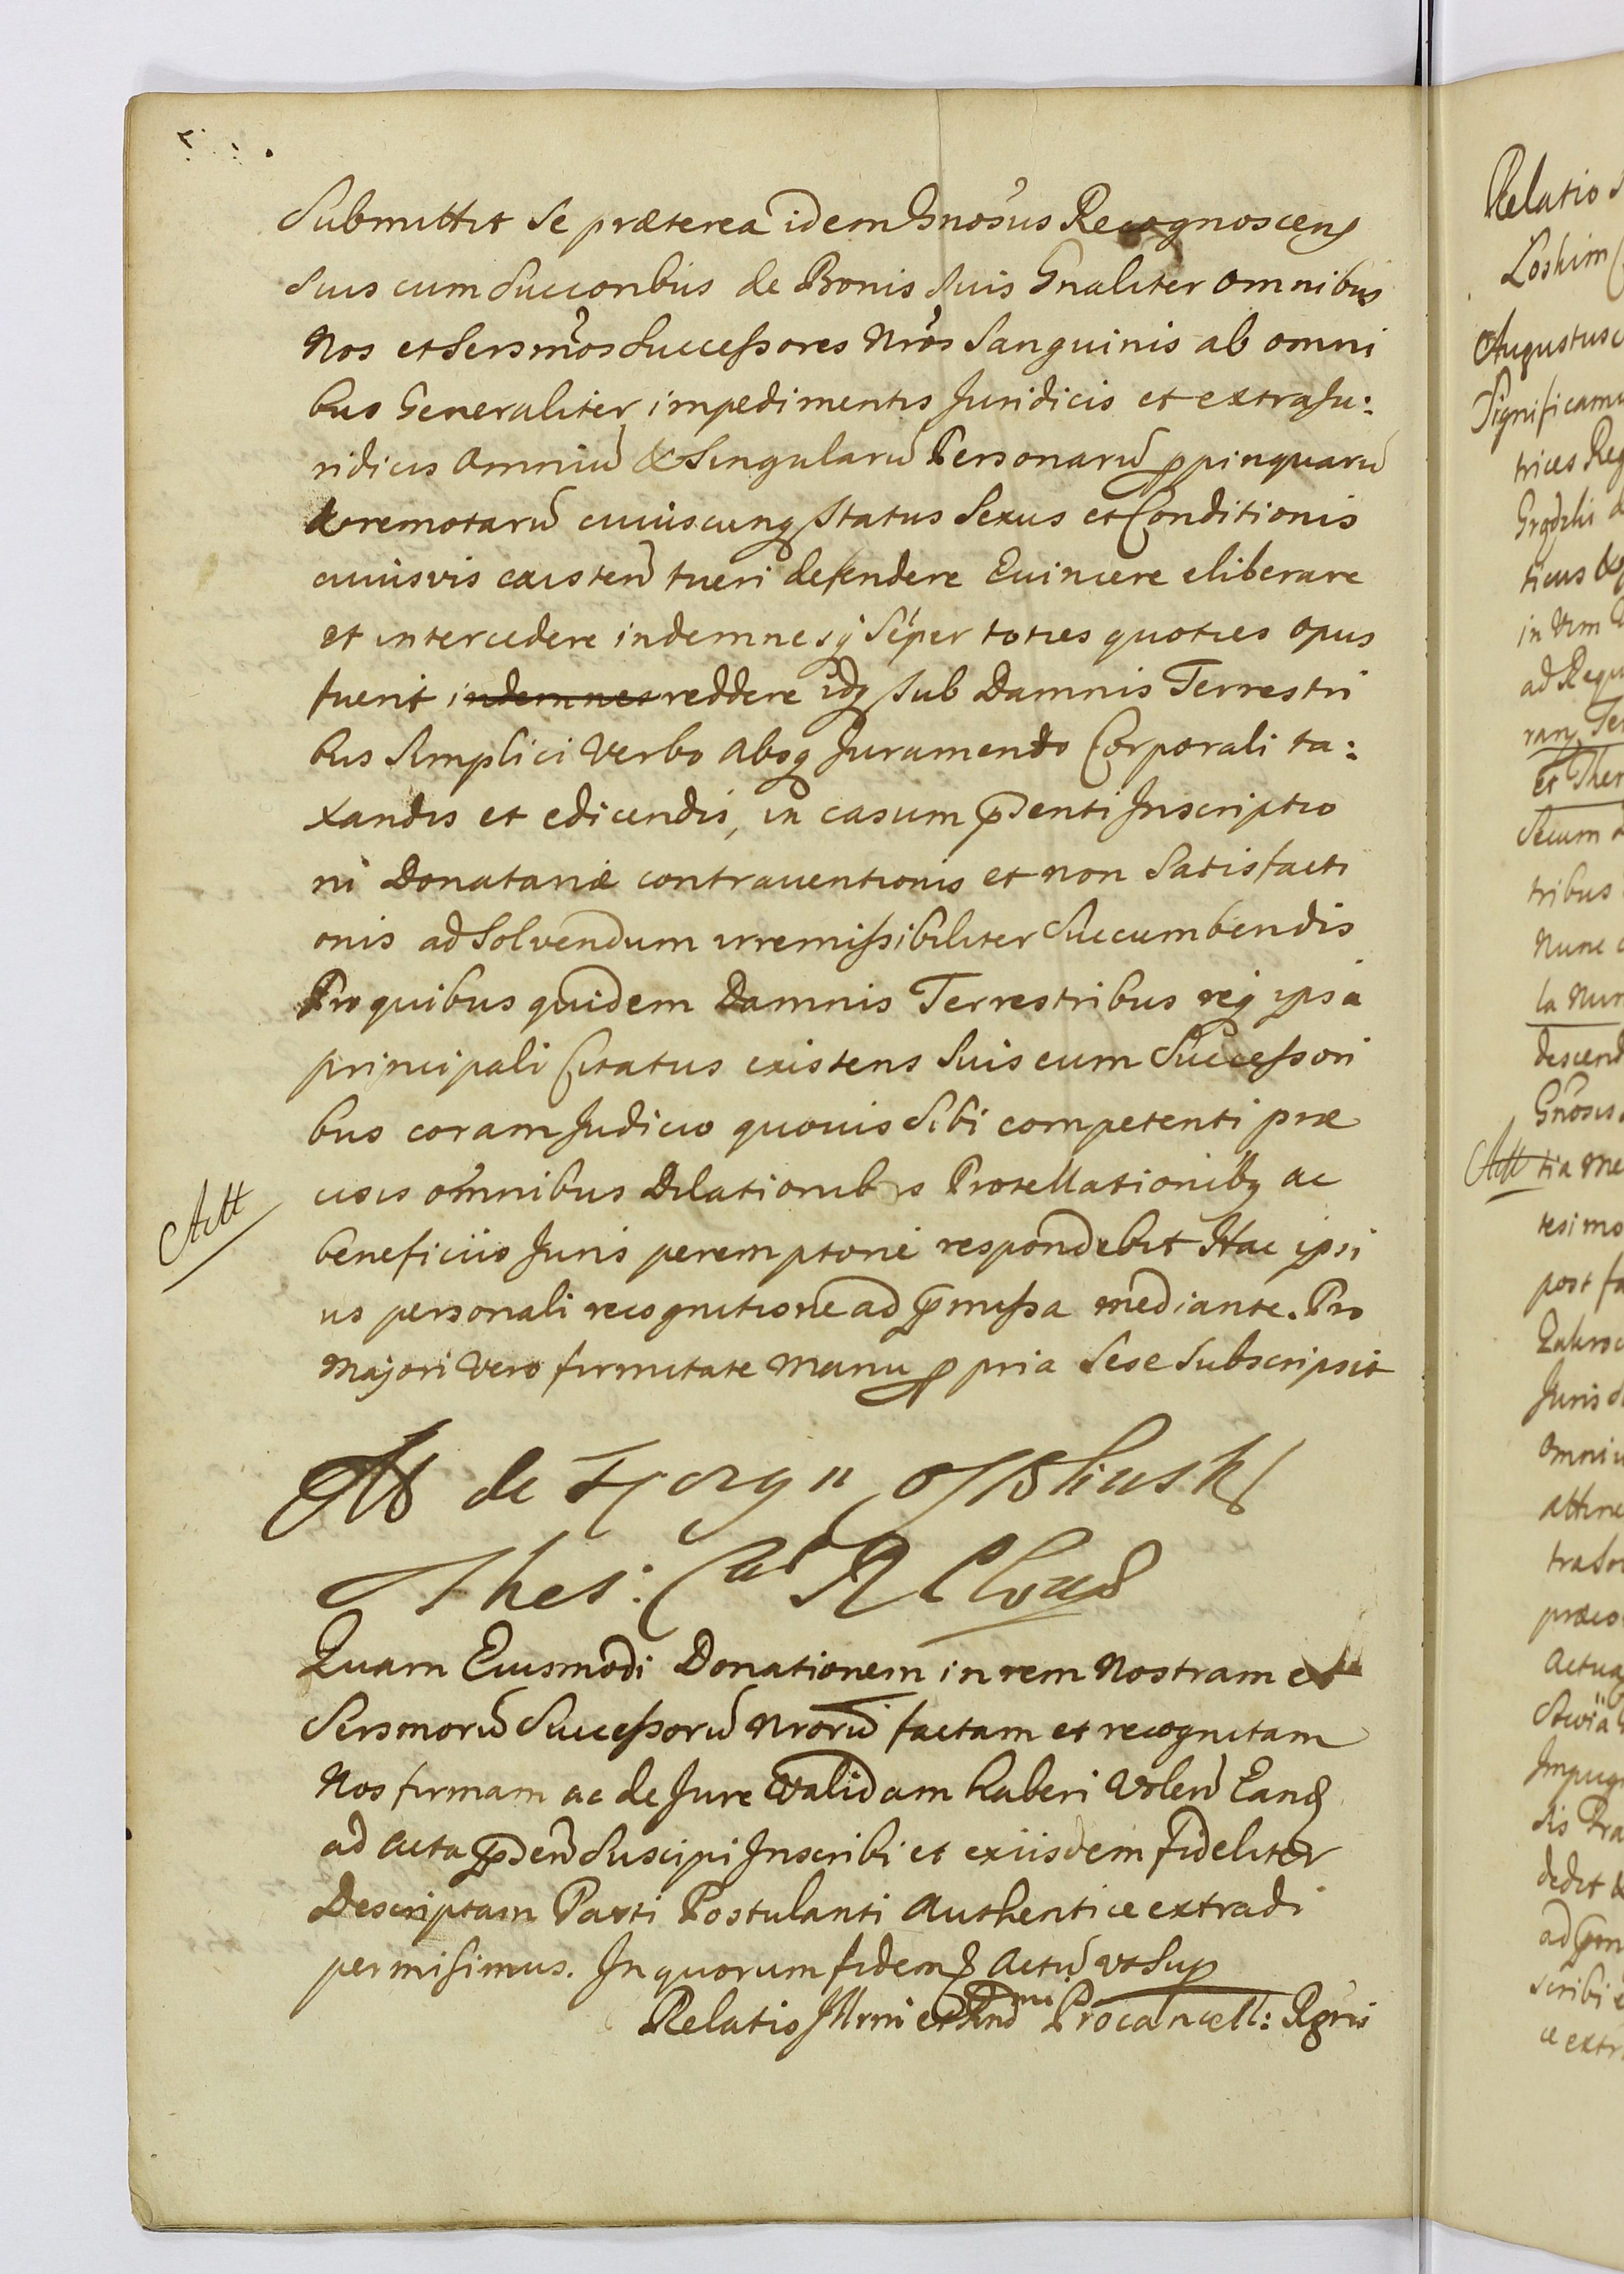 Submittit se præterea idem Gnosus Recognoscens
suis cum Succonbus de Bonis suis Gnaliter omnibus
Nos et Sersmos Successores Nros Sanguinis ab omni
bus Generaliter impedimentis Juridicis et extraJu:
ridicis omniū & Singularū Personarū ppinquarū
& remotarū cuiuscunq status Sexus et Conditionis
cuiusvis existen tueri defendere Evincere eliberare
et intercedere indemnesq sęper toties quoties opus
fuerit indemnes reddere idq sub Damnis Terrestri
bus Simplici Verbo absq Juramento Corporali ta:
xandis et edicendis, in casum pdenti Inscriptio
ni Donatariæ contraventionis et non Satisfacti
onis ad solvendum irremissibiliter Succumbendis
Pro quibus quidem Damnis Terrestribus req ipsa
principali Citatus existens suis cum Successori
bus coram Judicio quovis sibi competenti præ
cisis omnibus Dilationibus Protellationibq ac
Actt
beneficiis Juris peremptorie respondebit Hac ipsi
us personali recognitione ad pmissa mediante. Pro
Majori Vero firmitate manu ppria sese subscripsit
de
Thes: Cur R
Quam Eiusmodi Donationem in rem Nostram et
Sersmorū Successorū Nrorū factam et recognitam
Nos firmam ac de Jure Validam haberi Volen Eanq
ad Acta pden Suscipi Inscribi et exiisdem fideliter
Descriptam Parti Postulanti Authentice extradi
permisimus. In quorum fidem & Actū ut Sup
Relatio Illmi et Rndmi Procancell: Rgnis
Relatio
Loskim
Augustus
Significamus
trices Reg
ticus &
in Vim
ad Requ
et Ther
Secum
tribus
Nunc
la Nun
descend
Gnosis
Actt tia me
tesimo
post fa
Juris
omniu
attine
præcis
Actuq
Impug
sis Pra
dedit &
ad pm
scribi e
ce extr